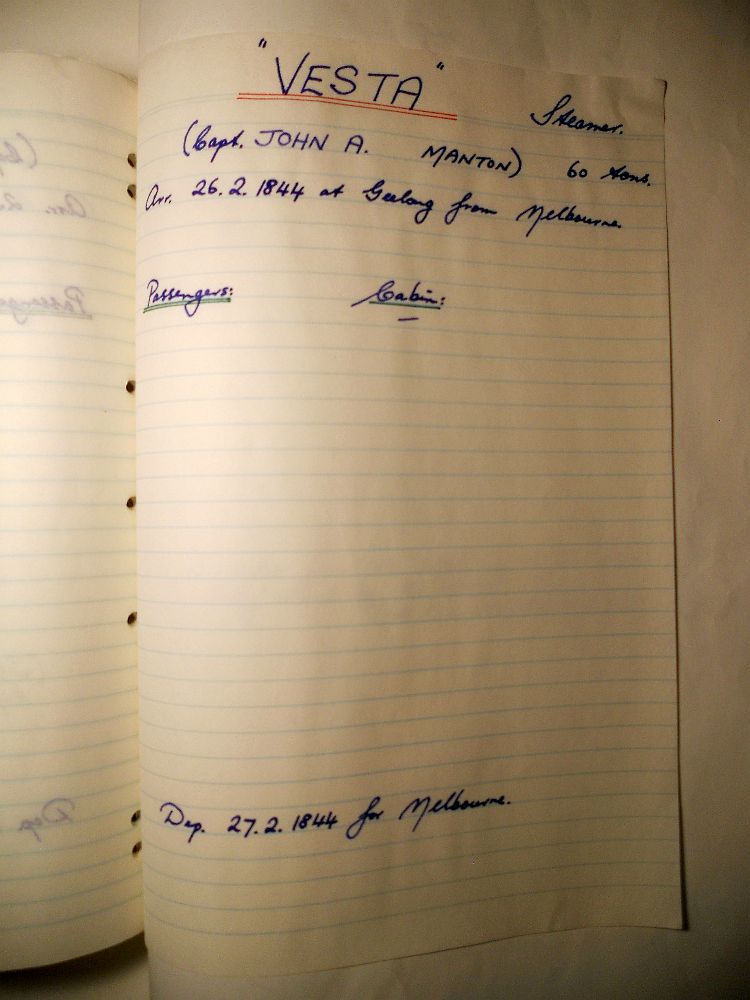 "VESTA"
Steamer.
(Capt. JOHN A. MANTON) 60 tons.
Arr. 26.2.1844 at Geelong from Melbourne.
Passengers: Cabin:
—
Dep. 27.2.1844 for Melbourne.